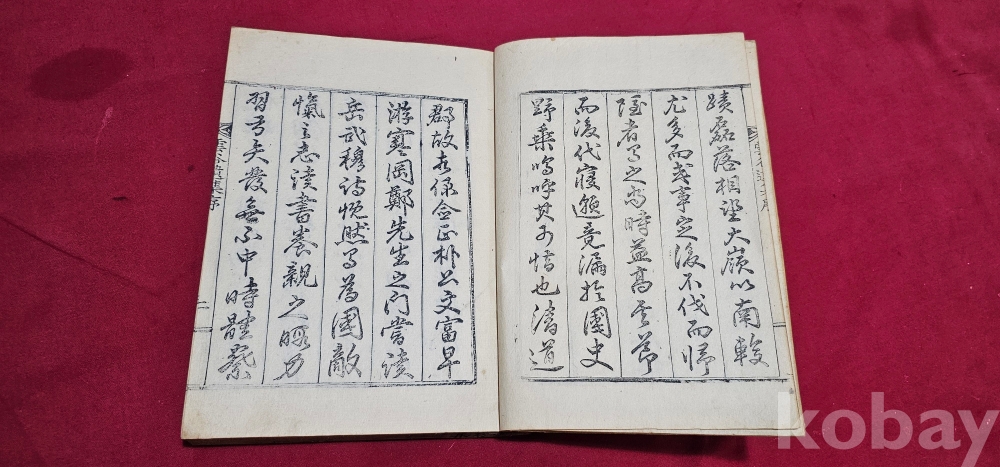 蹟磊落相望大嶺以南較
尤多而或事定後不伐而歸
隱者有之當時益高其節
而後代寢邈竟漏於國史
野乘嗚呼其可惜也清道
郡故主簿金正朴公文富早
游寒岡鄭先生之門嘗讀
岳武穆詩慨然有為國敵
愾之志讀書養親之暇力
習弓矢發無不中時體察
雲谷遺集序
二
kobay